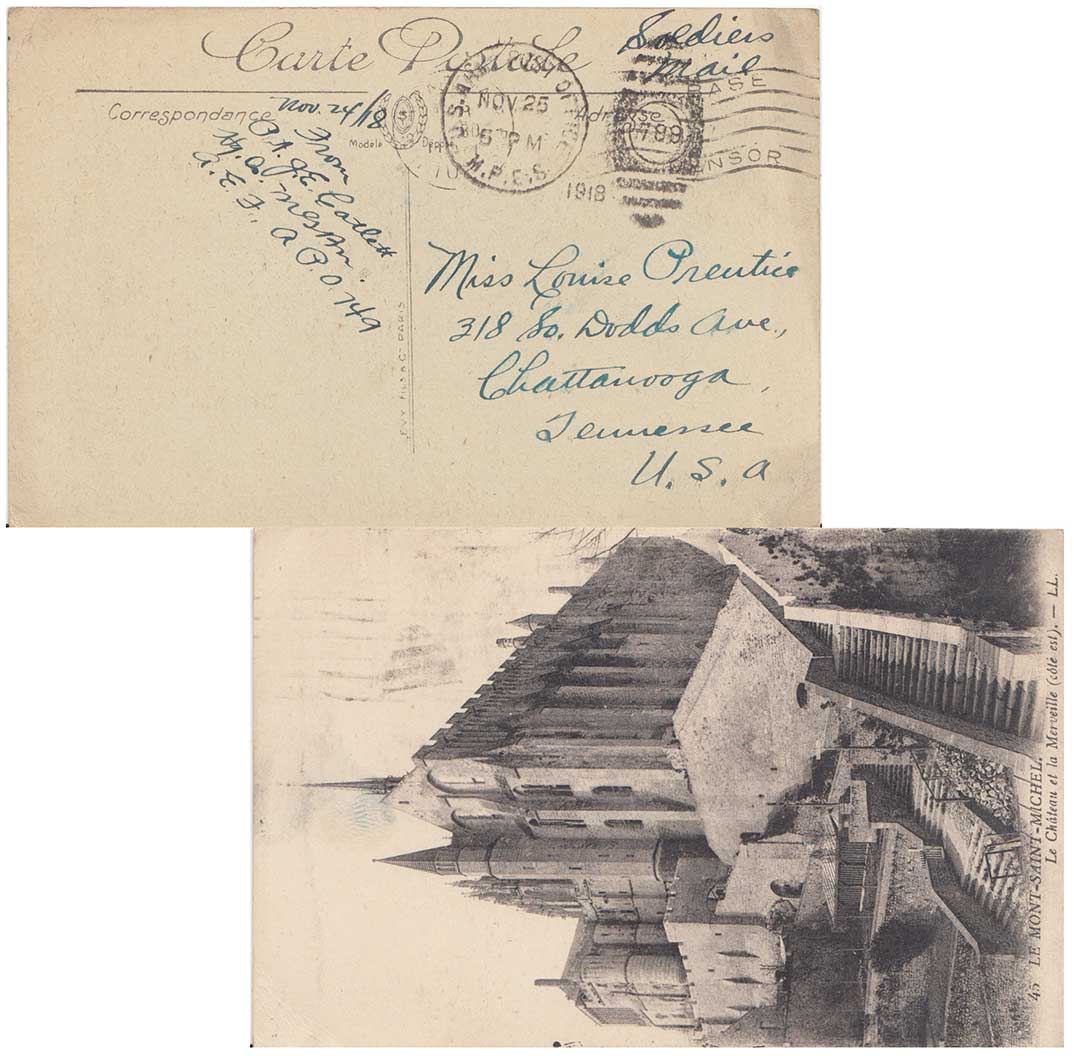 Carte Postale
Soldiers
Mail
Correspondance
Adresse
Modèle Déposé
U.S. ARMY POST OFFICE
NOV 25
5 PM
M.P.E.S.
1918
BASE
CENSOR
Nov. 24/18
From
J. E. Catlett
Hq. Co.
A. E. F.
A P. O 749
LEVY FILS & Cⁱᵉ PARIS
Miss Louise Prentice
318 So. Dodds Ave.,
Chattanooga,
Tennessee
U. S. A
45 LE MONT-SAINT-MICHEL.
Le Château et la Merveille (côté est). — LL.